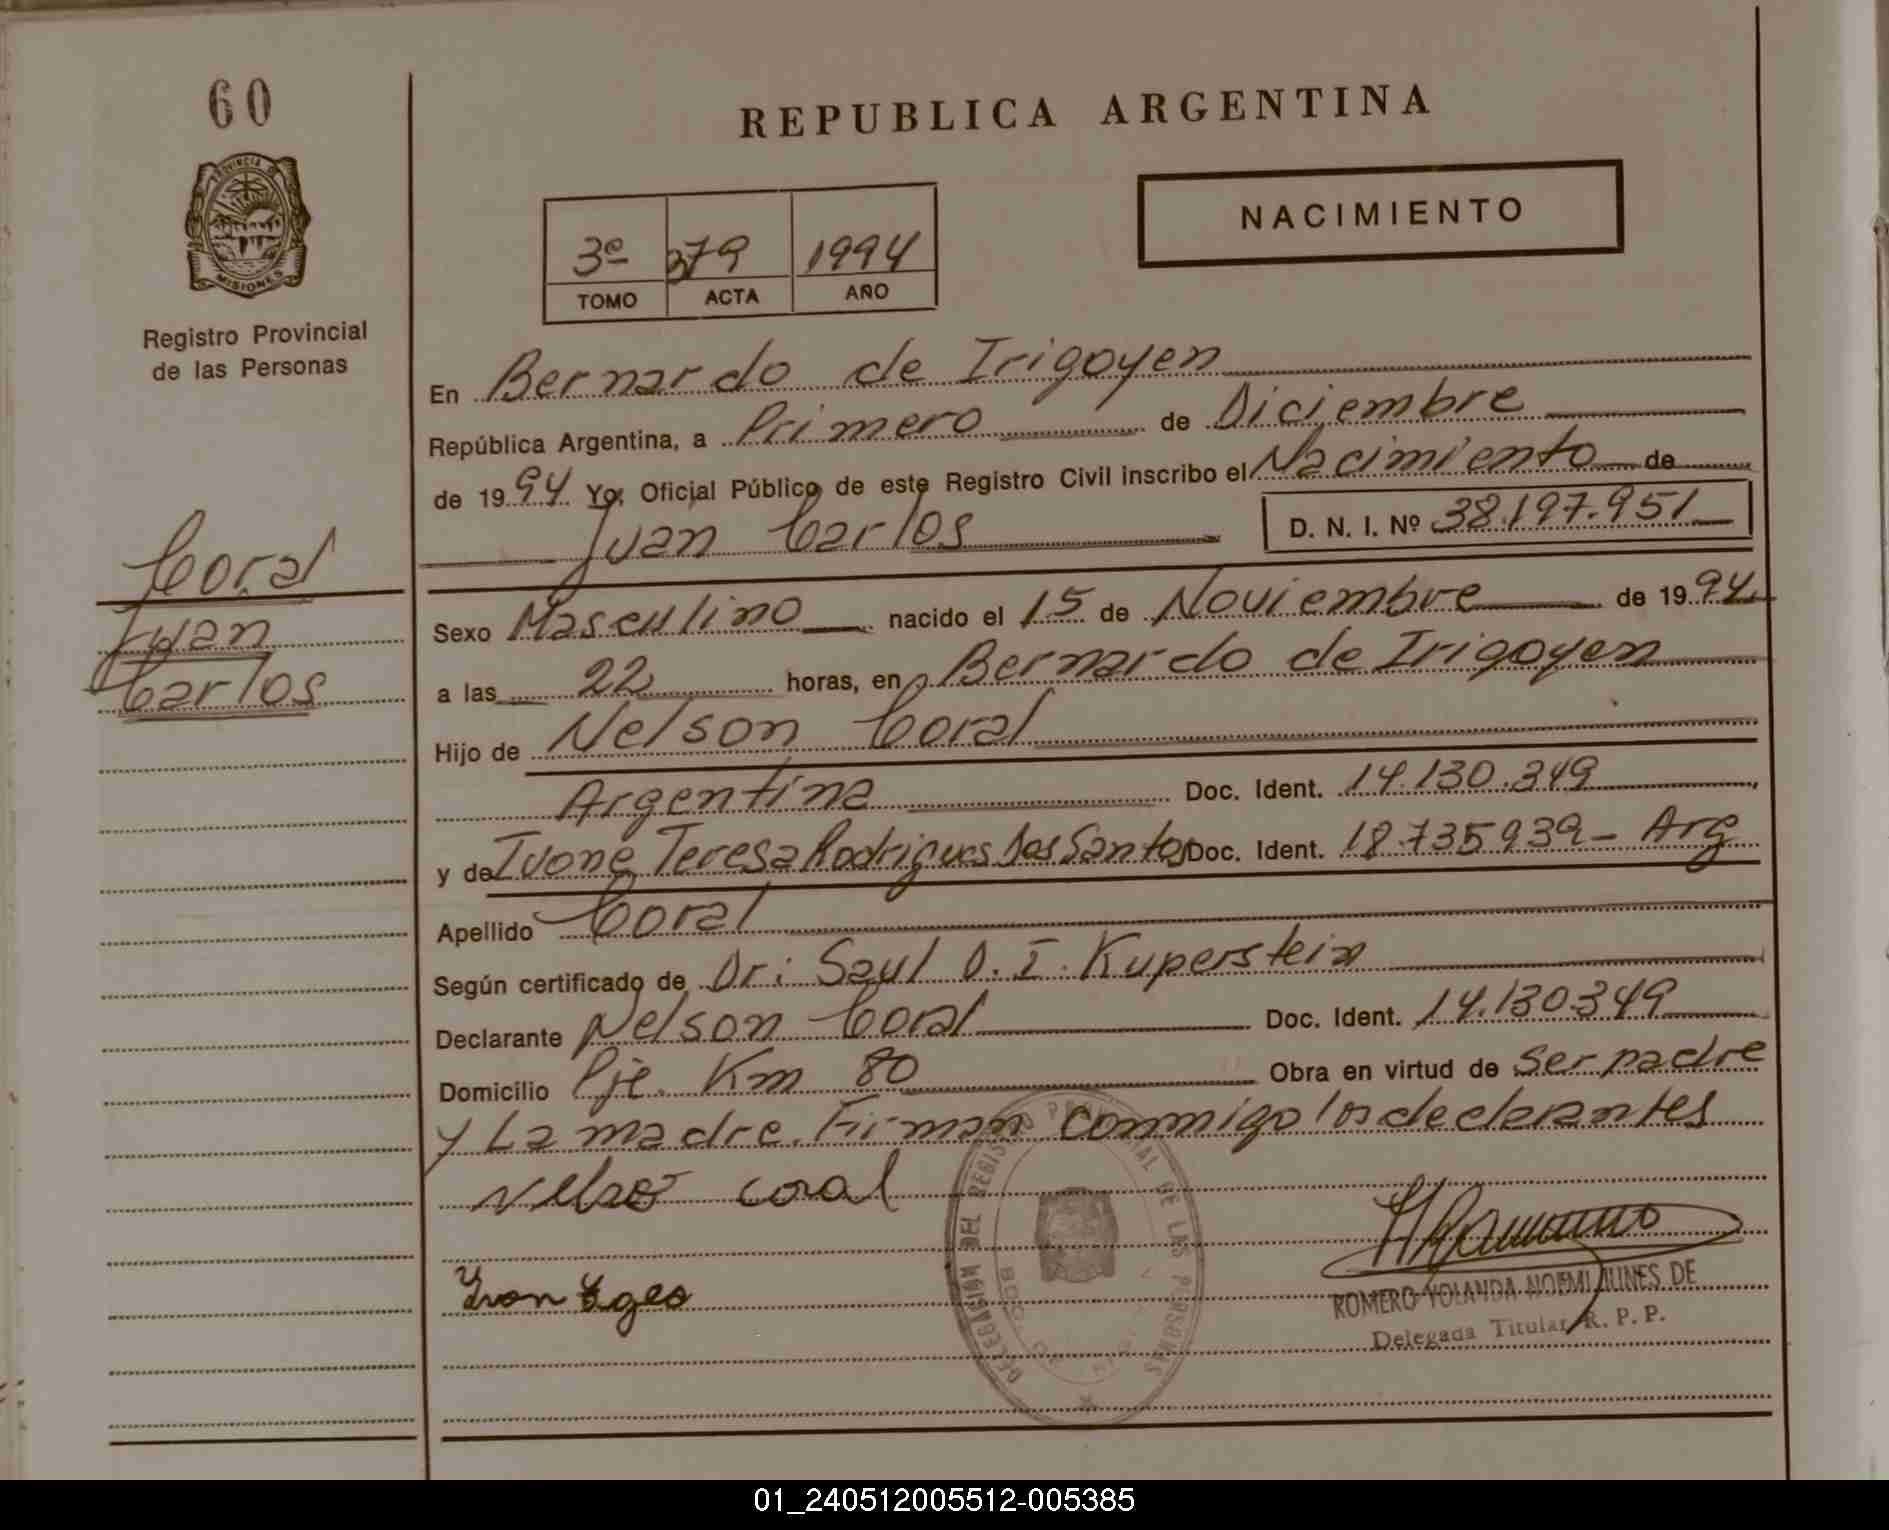 60
PROVINCIA DE
MISIONES
Registro Provincial
de las Personas
Coral
Juan
Carlos
REPUBLICA ARGENTINA
NACIMIENTO
3º 379 1994
TOMO ACTA AÑO
En Bernardo de Irigoyen
República Argentina, a Primero de Diciembre
de 1994 Yo, Oficial Público de este Registro Civil inscribo el Nacimiento de
Juan Carlos D. N. I. Nº 38.197.951
Sexo Masculino nacido el 15 de Noviembre de 1994
a las 22 horas, en Bernardo de Irigoyen
Hijo de Nelson Coral
Argentina Doc. Ident. 14.130.349
y de Ivone Teresa Rodrigues Dos Santos Doc. Ident. 18.735939 - Arg
Apellido Coral
Según certificado de Dr: Saul D. I. Kuperstein
Declarante Nelson Coral Doc. Ident. 14.130349
Domicilio Pje. Km 80 Obra en virtud de ser padre
y La madre. Firman conmigo los declarantes
Nelso coral
ROMERO YOLANDA NOEMI NUNES DE
Delegada Titular R. P. P.
DELEGACION DEL REGISTRO PROVINCIAL DE LAS PERSONAS
01_240512005512-005385